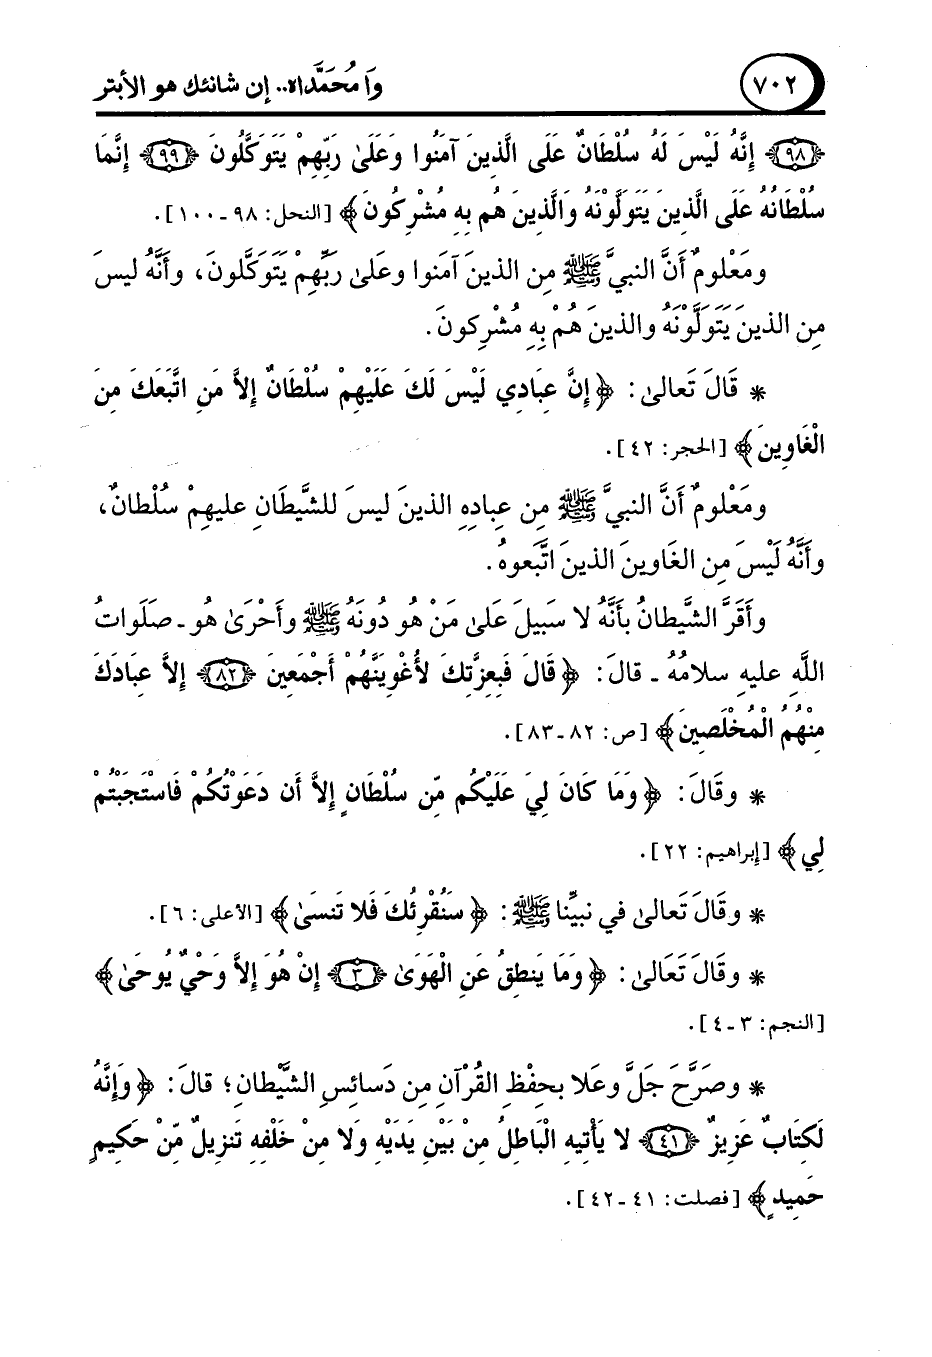 وَا مُحَمَّداه.. إن شانئك هو الأبتر
٧٠٢
﴿٩٨﴾ إِنَّهُ لَيْسَ لَهُ سُلْطَانٌ عَلَى الَّذِينَ آمَنُوا وَعَلَىٰ رَبِّهِمْ يَتَوَكَّلُونَ ﴿٩٩﴾ إِنَّمَا
سُلْطَانُهُ عَلَى الَّذِينَ يَتَوَلَّوْنَهُ وَالَّذِينَ هُم بِهِ مُشْرِكُونَ﴾ [النحل: ٩٨ ـ ١٠٠].
ومَعْلومٌ أَنَّ النبيَّ ﷺ مِن الذينَ آمَنوا وعَلىٰ رَبِّهِمْ يَتَوَكَّلونَ، وأَنَّهُ ليسَ
مِن الذينَ يَتَوَلَّوْنَهُ والذينَ هُمْ بِهِ مُشْرِكونَ.
* قَالَ تَعالىٰ: ﴿إِنَّ عِبَادِي لَيْسَ لَكَ عَلَيْهِمْ سُلْطَانٌ إِلاَّ مَنِ اتَّبَعَكَ مِنَ
الْغَاوِينَ﴾ [الحجر: ٤٢].
ومَعْلومٌ أَنَّ النبيَّ ﷺ مِن عِبادِهِ الذينَ ليسَ للشَّيطَانِ عليهِمْ سُلْطانٌ،
وأَنَّهُ لَيْسَ مِن الغَاوينَ الذينَ اتَّبَعوهُ.
وأَقَرَّ الشَّيطانُ بأَنَّهُ لا سَبيلَ عَلىٰ مَنْ هُو دُونَهُ ﷺ وأَحْرَىٰ هُو ـ صَلَواتُ
اللَّهِ عليهِ سلامُهُ ـ قالَ: ﴿قَالَ فَبِعِزَّتِكَ لأُغْوِيَنَّهُمْ أَجْمَعِينَ ﴿٨٢﴾ إِلاَّ عِبَادَكَ
مِنْهُمُ الْمُخْلَصِينَ﴾ [ص: ٨٢ ـ ٨٣].
* وقَالَ: ﴿وَمَا كَانَ لِيَ عَلَيْكُم مِّن سُلْطَانٍ إِلاَّ أَن دَعَوْتُكُمْ فَاسْتَجَبْتُمْ
لِي﴾ [إبراهيم: ٢٢].
* وقَالَ تَعالىٰ في نبيِّنا ﷺ: ﴿سَنُقْرِئُكَ فَلا تَنسَىٰ﴾ [الأعلى: ٦].
* وقَالَ تَعَالىٰ: ﴿وَمَا يَنطِقُ عَنِ الْهَوَىٰ ﴿٣﴾ إِنْ هُوَ إِلاَّ وَحْيٌ يُوحَىٰ﴾
[النجم: ٣ ـ ٤].
* وصَرَّحَ جَلَّ وعَلا بحِفْظِ القُرْآنِ مِن دَسائسِ الشَّيْطانِ؛ قالَ: ﴿وَإِنَّهُ
لَكِتَابٌ عَزِيزٌ ﴿٤١﴾ لا يَأْتِيهِ الْبَاطِلُ مِنْ بَيْنِ يَدَيْهِ وَلا مِنْ خَلْفِهِ تَنزِيلٌ مِّنْ حَكِيمٍ
حَمِيدٍ﴾ [فصلت: ٤١ ـ ٤٢].